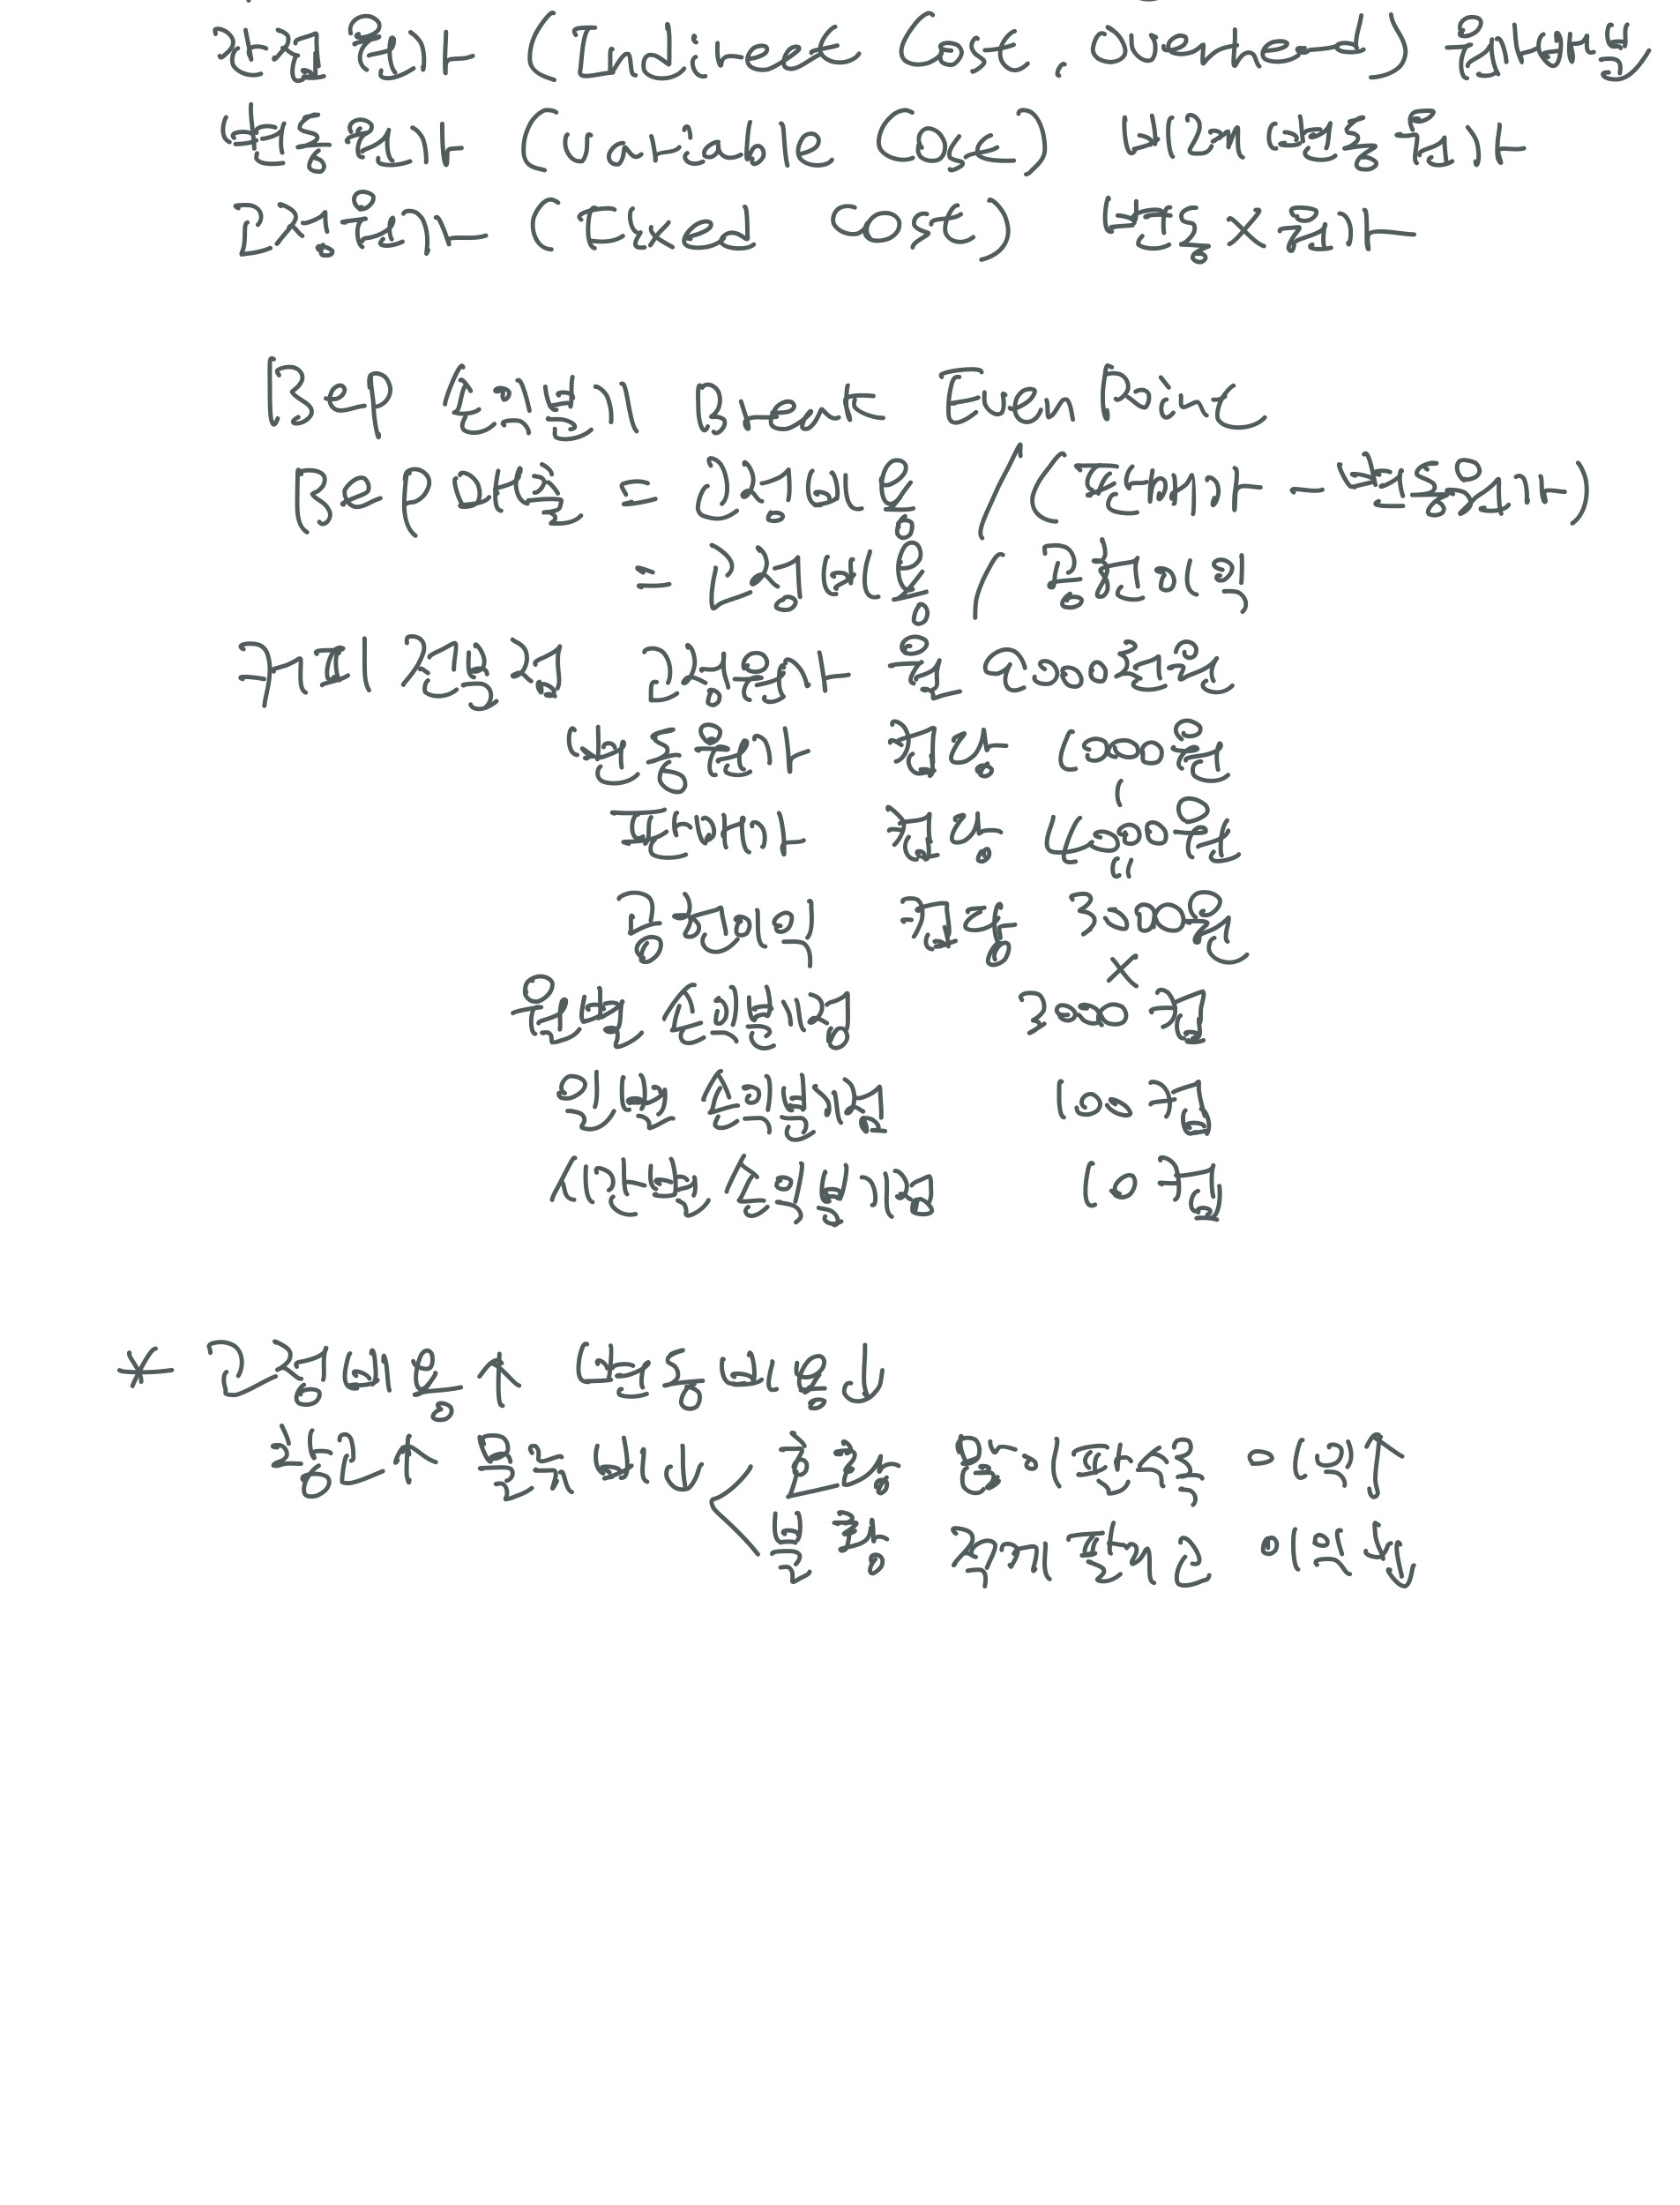 간접원가 (Indirect Cost, Overhead) 원가배분
변동원가 (Variable Cost) 비례 변동원가
고정원가 (Fixed Cost) 변동x원가
BeP 손익분기 Break Even Point
BeP 매출 = 고정비용 / (판매가 - 변동원가)
= 고정비용 / 공헌이익
커피 전문점 고정원가 월 9000000원
변동원가 컵당 1000원
판매가 컵당 4000원
공헌이익 컵당 3000원
×
월별 손익분기점 3000컵
일별 손익분기점 100컵
시간별 손익분기점 10컵
* 고정비용↑ 변동비용↓
광고↑ 물건비↓ 호황 이익↑
불황 이익↓